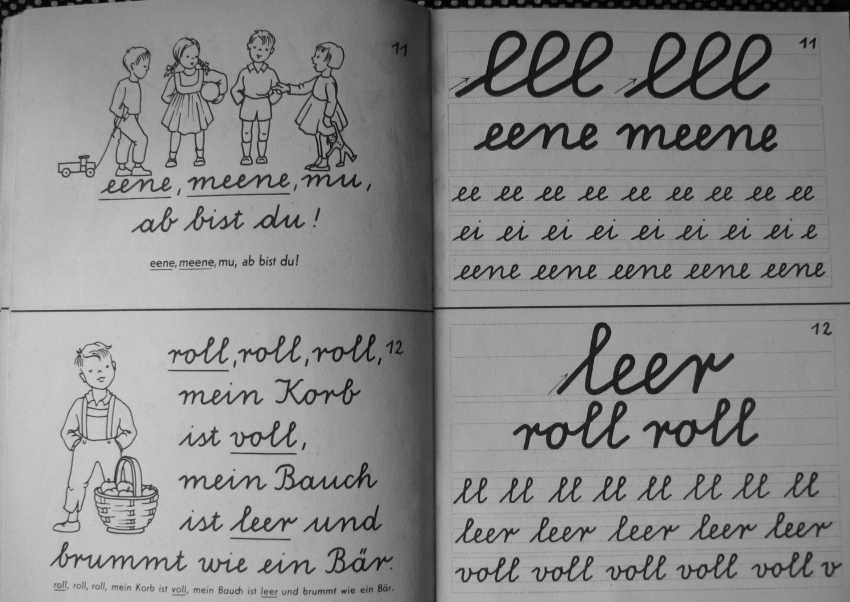 11
eene, meene, mu,
ab bist du!
eene, meene, mu, ab bist du!
roll, roll, roll, 12
mein Korb
ist voll,
mein Bauch
ist leer und
brummt wie ein Bär.
roll, roll, roll, mein Korb ist voll, mein Bauch ist leer und brummt wie ein Bär.
lll lll 11
eene meene
ee ee ee ee ee ee ee ee ee
ei ei ei ei ei ei ei ei e
eene eene eene eene eene
12
leer
roll roll
ll ll ll ll ll ll ll ll
leer leer leer leer leer
voll voll voll voll voll v